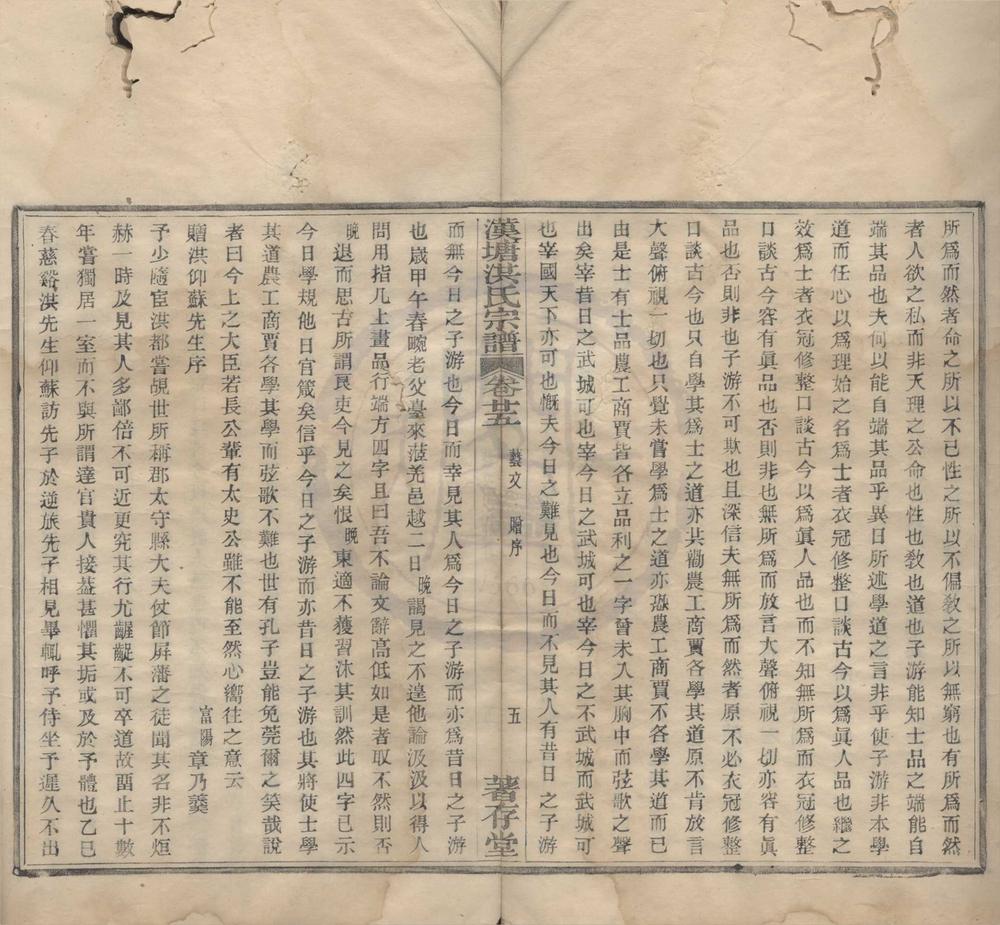 所爲而然者命之所以不已性之所以不偏敎之所以無窮也有所爲而然
者人欲之私而非天理之公命也性也敎也道也子游能知士品之端能自
端其品也夫何以能自端其品乎異日所述學道之言非乎使子游非本學
道而任心以爲理始之名爲士者衣冠修整口談古今以爲眞人品也繼之
效爲士者衣冠修整口談古今以爲眞人品也而不知無所爲而衣冠修整
口談古今容有眞品也否則非也無所爲而放言大聲俯視一切亦容有眞
品也否則非也子游不可欺也且深信夫無所爲而然者原不必衣冠修整
口談古今也只自學其爲士之道亦共勸農工商賈各學其道原不肯放言
大聲俯視一切也只覺未嘗學爲士之道亦恐農工商賈不各學其道而已
由是士有士品農工商賈皆各立品利之一字曾未入其胸中而弦歌之聲
出矣宰昔日之武城可也宰今日之武城可也宰今日之不武城而武城可
也宰國天下亦可也慨夫今日之難見也今日而不見其人有昔日之子游
漢塘洪氏宗譜 卷廿五 藝文 贈序 五 著存堂
而無今日之子游也今日而幸見其人爲今日之子游而亦爲昔日之子游
也歲甲午春晼老父臺來涖羌邑越二日晚謁見之不遑他論汲汲以得人
問用指几上畫品行端方四字且曰吾不論文辭高低如是者取不然則否
晚退而思古所謂良吏今見之矣恨晚東適不獲習沐其訓然此四字已示
今日學規他日官箴矣信乎今日之子游而亦昔日之子游也其將使士學
其道農工商賈各學其學而弦歌不難也世有孔子豈能免莞爾之笑哉說
者曰今上之大臣若長公輩有太史公雖不能至然心嚮往之意云
贈洪仰蘇先生序
富陽 章乃羹
予少隨宦洪都嘗覘世所稱郡太守縣大夫仗節屏藩之徒聞其名非不烜
赫一時及見其人多鄙倍不可近更究其行尤齷齪不可卒道故畱止十數
年嘗獨居一室而不與所謂達官貴人接葢甚懼其垢或及於予體也乙巳
春慈谿洪先生仰蘇訪先子於逆旅先子相見畢輒呼予侍坐予遲久不出